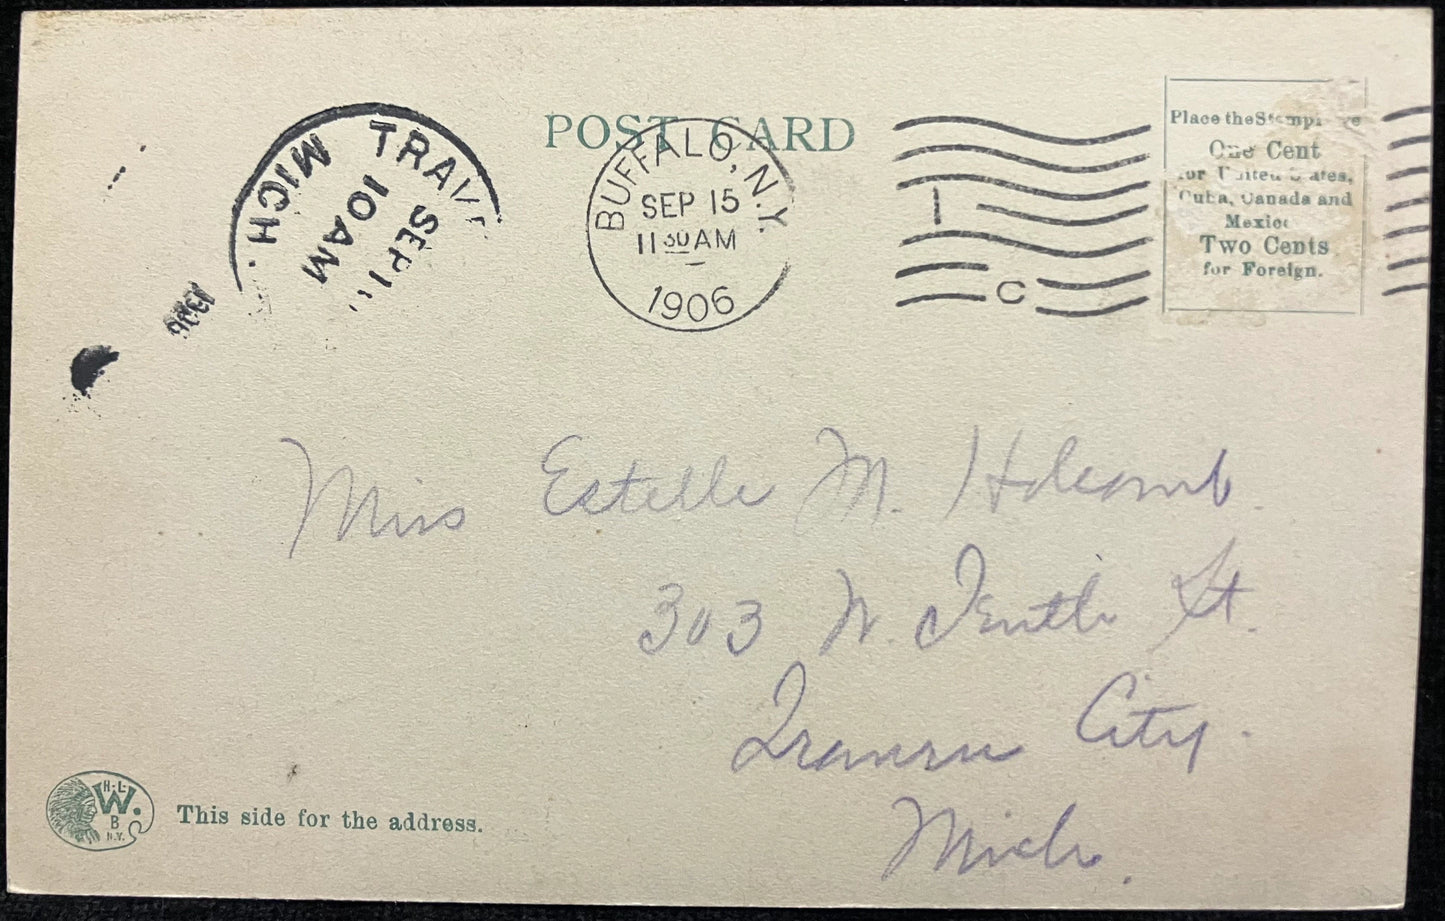 POST CARD
TRAVE
MICH.
SEP 1
10AM
1906
BUFFALO, N.Y.
SEP 15
11 30 AM
1906
1
C
Place the Stamp
One Cent
for United States,
Cuba, Canada and
Mexico
Two Cents
for Foreign.
Miss Estelle M. Holcomb
303 W. Tenth St.
Traverse City.
Mich.
H.L.
W.
B
N.Y.
This side for the address.